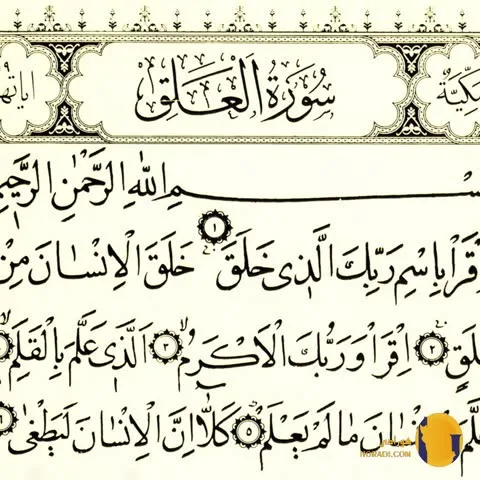 كِّيَّةٌ سُورَةُ الْعَلَقِ اٰيَاتُهَا ١٩
سْمِ اللّٰهِ الرَّحْمٰنِ الرَّحِيمِ
قْرَأْ بِاسْمِ رَبِّكَ الَّذِى خَلَقَ ۚ ﴿١﴾ خَلَقَ الْاِنْسَانَ مِنْ
لَقٍۚ ﴿٢﴾ اِقْرَأْ وَرَبُّكَ الْاَكْرَمُۙ ﴿٣﴾ اَلَّذِى عَلَّمَ بِالْقَلَمِۙ
لَّمَ مَا لَمْ يَعْلَمْۜ ﴿٥﴾ كَلَّٓا اِنَّ الْاِنْسَانَ لَيَطْغٰىۙ ﴿٦﴾
NORADI.COM